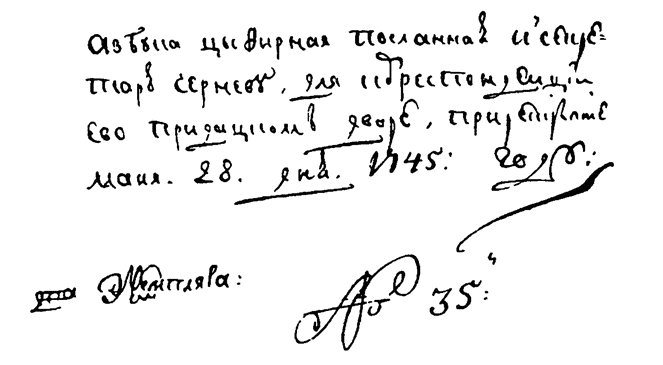 азбука цыфирная посланная к секре=
тарю черневу, для корреспонденции
ево при дацком дворе, при рескрипте
маия. 28. дня. 1745: году:
два экземпляра: № 35: